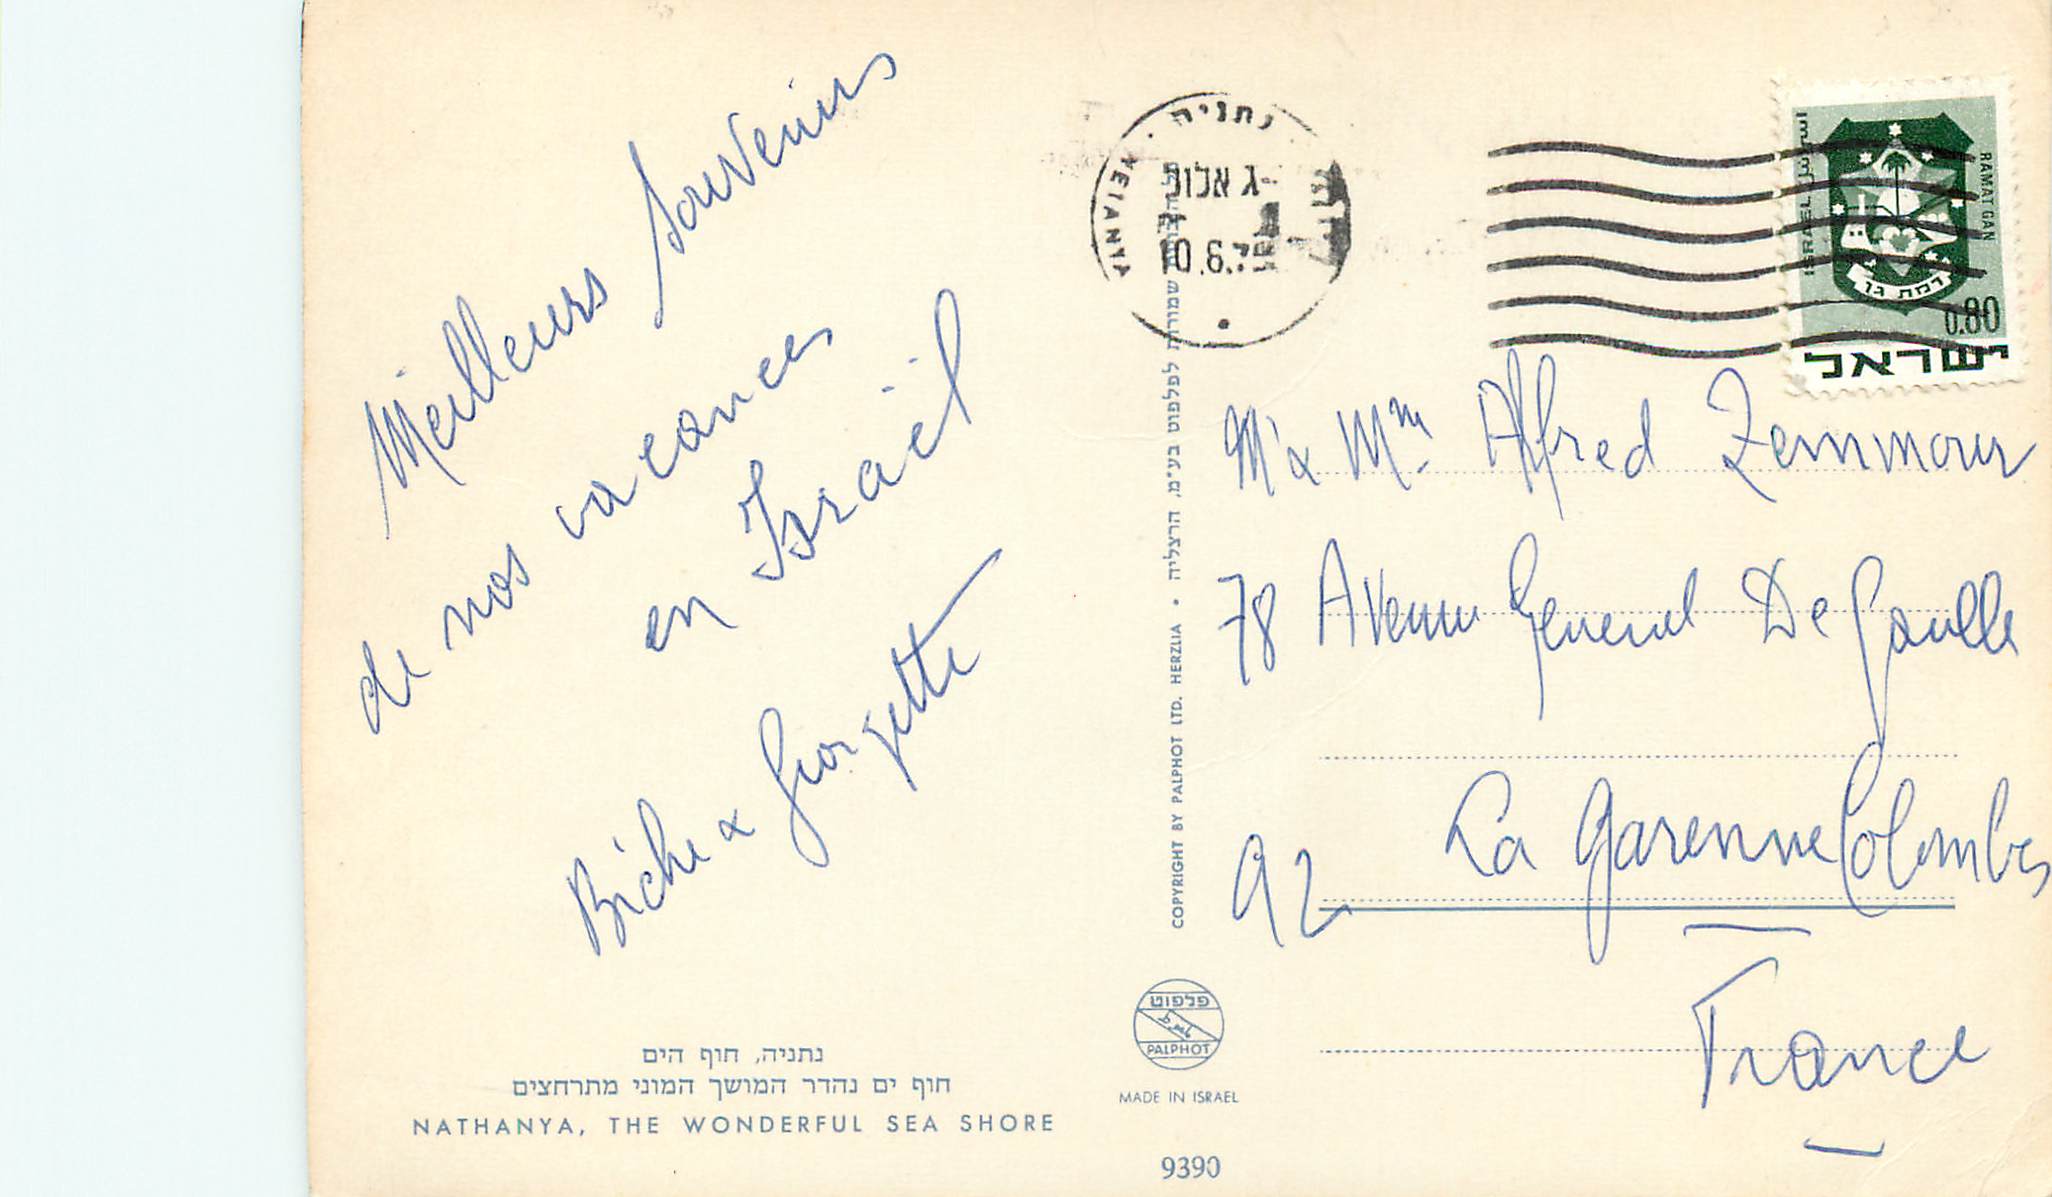 Meilleurs Souvenirs
de nos vacances
en Israël
Biche & Georgette
נתניה, חוף הים
חוף ים נהדר המושך המוני מתרחצים
NATHANYA, THE WONDERFUL SEA SHORE
COPYRIGHT BY PALPHOT LTD. HERZLIA • שמורות לפלפוט בע"מ, הרצליה
פלפוט
PALPHOT
MADE IN ISRAEL
9390
נתניה
NETANYA
10.6.
ISRAEL
اسرائيل
RAMAT GAN
רמת גן
0.80
ישראל
Mr & Mm Alfred Zemmour
78 Avenue General De Gaulle
92 La Garenne Colombes
France